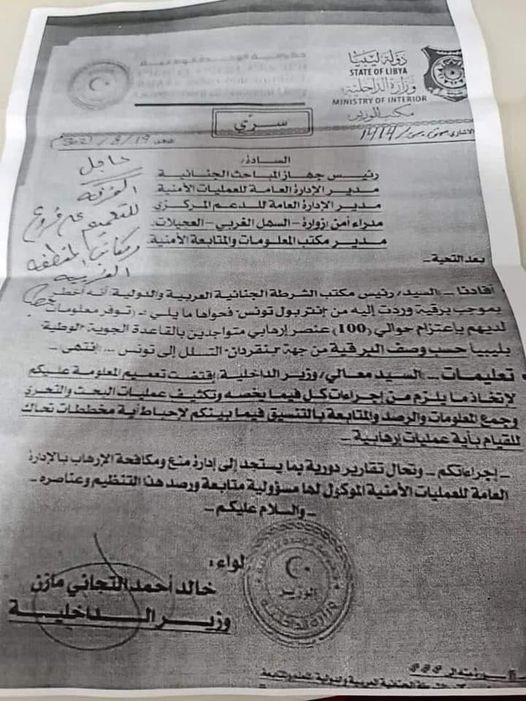 دولة ليبيا
STATE OF LIBYA
وزارة الداخلية
MINISTRY OF INTERIOR
مكتب الوزير
سري
السادة/
رئيس جهاز المباحث الجنائية
مدير الإدارة العامة للعمليات الأمنية
مدير الإدارة العامة للدعم المركزي
مدراء أمن /زوارة - السهل الغربي - العجيلات.
مدير مكتب المعلومات والمتابعة الأمنية.
عاجل
للتعميم على فروع
ومكاتب المنطقة
الغربية
بعد التحية..
أفادنا ... السيد/ رئيس مكتب الشرطة الجنائية العربية والدولية أنه
بموجب برقية وردت إليه من إنتربول تونس- فحواها ما يلي :- (توفر معلومات
لديهم بإعتزام حوالي (100) عنصر إرهابي متواجدين بالقاعدة الجوية "الوطية"
بليبيا حسب وصف البرقية من جهة "بنقردان" التسلل إلى تونس ... )انتهى -
تعليمات ... السيد معالي/ وزير الداخلية: إقتضت تعميم المعلومة عليكم
لإتخاذ ما يلزم من إجراءات كل فيما يخصه وتكثيف عمليات البحث والتحري
وجمع المعلومات والرصد والمتابعة بالتنسيق فيما بينكم لإحباط أية مخططات تحاك
للقيام بأية عمليات إرهابية ...
- إجراءاتكم ... وتحال تقارير دورية بما يستجد إلى إدارة منع ومكافحة الإرهاب بالإدارة
العامة للعمليات الأمنية الموكول لها مسؤولية متابعة ورصد هذا التنظيم وعناصره ...
... والسلام عليكم ...
لواء/
خالد أحمد التجاني مازن
وزير الداخلية
الوزير